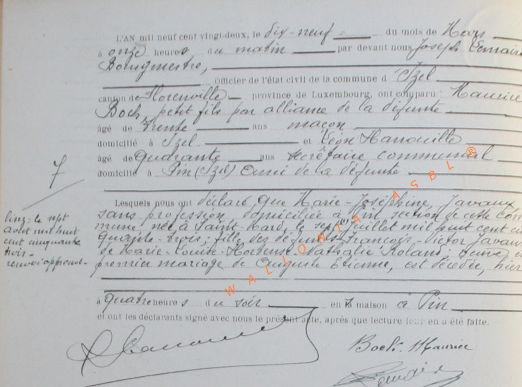 L'AN mil neuf cent vingt-deux, le dix-neuf du mois de Mars
à onze heures du matin par devant nous Joseph
Bourgmestre,
officier de l'état civil de la commune d'Izel
canton de Florenville province de Luxembourg, ont comparu Maurice
Boch petit fils par alliance de la défunte
âgé de trente ans maçon
domicilié à Izel et Léon Hanouille
âgé de Quarante ans secrétaire communal
domicilié à Pin (Izel) Ami de la défunte
Lesquels nous ont déclaré que Marie-Joséphine Javaux
sans profession domiciliée à Pin section de cette com
mune, née à Saint-Mard, le sept Juillet mil huit cent cin
quante-trois; fille des défunts François-Victor Javaux
de Marie-Louise-Hortense-Nathalie Roland, veuve en
premier mariage de Auguste Etienne, est décédée, hier
à quatre heures du soir en sa maison à Pin
et ont les déclarants signé avec nous le présent acte, après que lecture leur en a été faite.
7
lire: le sept
août mil huit
cent cinquante
trois-
renvoi approuvé.
Boch Maurice
WALLONIA ASBL ®